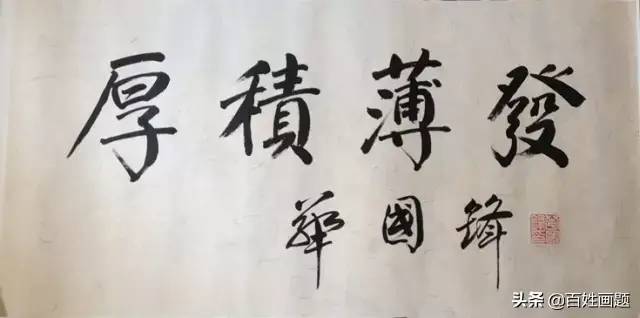 厚積薄發
華國鋒
头条 @百姓画题